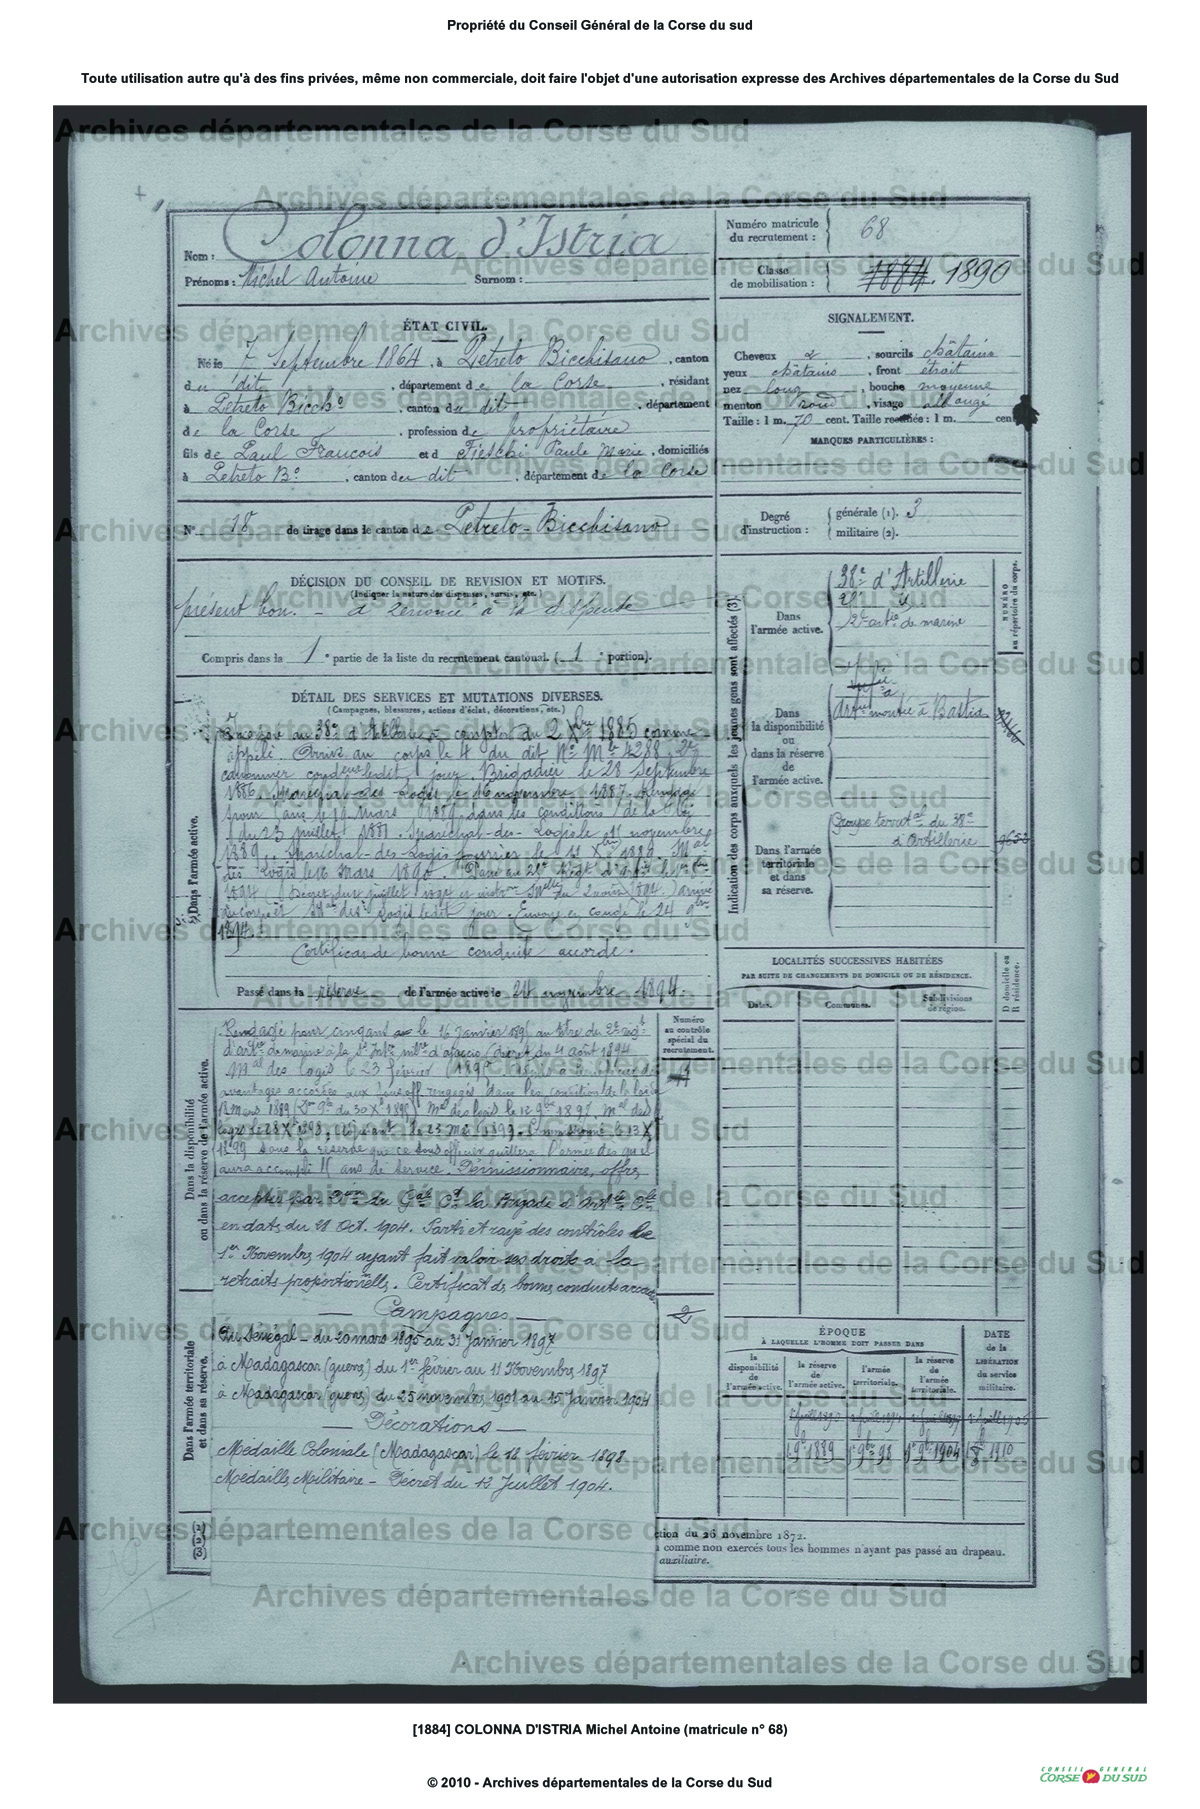 Propriété du Conseil Général de la Corse du sud
Toute utilisation autre qu'à des fins privées, même non commerciale, doit faire l'objet d'une autorisation expresse des Archives départementales de la Corse du Sud
Archives départementales de la Corse du Sud
Nom : Colonna d'Istria
Prénoms : Michel Antoine Surnom :
Numéro matricule du recrutement : 68
Classe de mobilisation : 1884. 1890
ÉTAT CIVIL.
Né le 7 Septembre 1864, à Petreto Bicchisano, canton
du dit, département de la Corse, résidant
à Petreto Bicch°, canton du dit, département
de la Corse, profession de propriétaire
fils de Paul François et d Fieschi Paule Marie, domiciliés
à Petreto B°, canton du dit, département de la Corse
N° 18 de tirage dans le canton de Petreto-Bicchisano
SIGNALEMENT.
Cheveux 2, sourcils châtains
yeux châtains, front étroit
nez long, bouche moyenne
menton rond, visage allongé
Taille : 1 m. 70 cent. Taille rectifiée : 1 m. cent.
MARQUES PARTICULIÈRES :
Degré d'instruction : générale (1). 3
militaire (2).
DÉCISION DU CONSEIL DE REVISION ET MOTIFS.
(Indiquer la nature des dispenses, sursis, etc.)
présent bon. - a renoncé à la dispense
Compris dans la 1e partie de la liste du recrutement cantonal. (1e portion).
DÉTAIL DES SERVICES ET MUTATIONS DIVERSES.
(Campagnes, blessures, actions d'éclat, décorations, etc.)
Dans l'armée active.
au 38e d'Artillerie à compter du 2 Xbre 1885 comme
appelé. Arrivé au corps le 4 du dit N° Mle 4288. 2e
canonnier conducteur ledit jour. Brigadier le 28 Septembre
1886. Maréchal-des-Logis le 16 novembre 1887. Rengagé
pour 5 ans le 19 mars 1889 dans les conditions de la loi
du 23 juillet 1881. Maréchal-des-Logis le 11 novembre
1889. Maréchal-des-Logis fourrier le 11 Xbre 1889. Mal
des Logis le 16 mars 1890. Passé au 2e Régt d'art
1894 (Décret du juillet 1894 et instron Mlle du 2 août 1894) arrivé
au corps et Mal des Logis ledit jour. Envoyé en congé le 24 9bre
1894.
Certificat de bonne conduite accordé.
Passé dans la réserve de l'armée active le 24 novembre 1894.
Dans la disponibilité ou dans la réserve de l'armée active.
Rengagé pour cinq ans le 16 Janvier 1895 au titre du 2e régt
d'artie de marine à la Ss Intce mre d'ajaccio (décret du 4 août 1894
Mal des logis le 23 février 1895
avantages accordés aux sous off rengagés dans les conditions de la loi du
18 mars 1889 Mal des logis le 12 9bre 1897. Mal des
logis le 28 Xbre 1898
1899 sous la réserve que ce sous officier quittera l'armée dès qu'il
aura accompli 15 ans de service. Démissionnaire, offre
acceptée par Don du Gal Ct la Brigade d'Artie Cle
en date du 28 Oct. 1904. Parti et rayé des contrôles le
1er Novembre 1904 ayant fait valoir ses droits à la
retraite proportionnelle. Certificat de bonne conduite accordé
Numéro au contrôle spécial du recrutement.
Dans l'armée territoriale et dans sa réserve.
Campagnes
Au Sénégal - du 20 mars 1895 au 31 Janvier 1897
à Madagascar (guerre) du 1er février au 11 Novembre 1897
à Madagascar (guerre) du 25 novembre 1901 au 15 Janvier 1904
Décorations
Médaille Coloniale (Madagascar) le 18 février 1898
Médaille Militaire - Décret du 12 Juillet 1904.
2
Indication des corps auxquels les jeunes gens sont affectés (3).
NUMÉRO au répertoire du corps.
Dans l'armée active.
38e d'Artillerie
2e artie de marine
Dans la disponibilité ou dans la réserve de l'armée active.
Artie montée à Bastia
Dans l'armée territoriale et dans sa réserve.
Groupe territal du 38e
d'Artillerie
LOCALITÉS SUCCESSIVES HABITÉES
PAR SUITE DE CHANGEMENTS DE DOMICILE OU DE RÉSIDENCE.
Dates. Communes. Subdivisions de région. D domicile ou R résidence.
ÉPOQUE
À LAQUELLE L'HOMME DOIT PASSER DANS
la disponibilité de l'armée active.
la réserve de l'armée active.
l'armée territoriale.
la réserve de l'armée territoriale.
DATE de la LIBÉRATION du service militaire.
1 9bre 1889 1 9bre 98 1 9bre 1904 1910
ction du 26 novembre 1872.
comme non exercés tous les hommes n'ayant pas passé au drapeau.
auxiliaire.
[1884] COLONNA D'ISTRIA Michel Antoine (matricule n° 68)
© 2010 - Archives départementales de la Corse du Sud
CONSEIL GÉNÉRAL
CORSE DU SUD